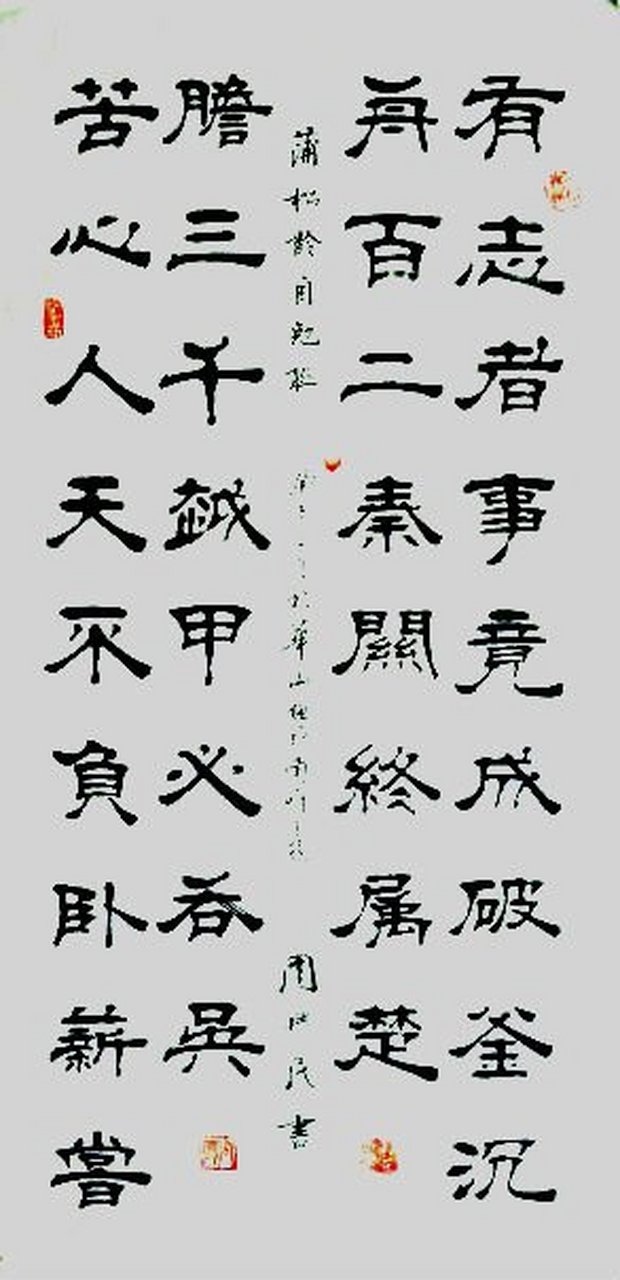 有志者事竟成破釜沉
舟百二秦關終属楚
苦心人天不負卧薪嘗
膽三千越甲必吞吳
蒲松齡自勉聯
於華山
周世民書